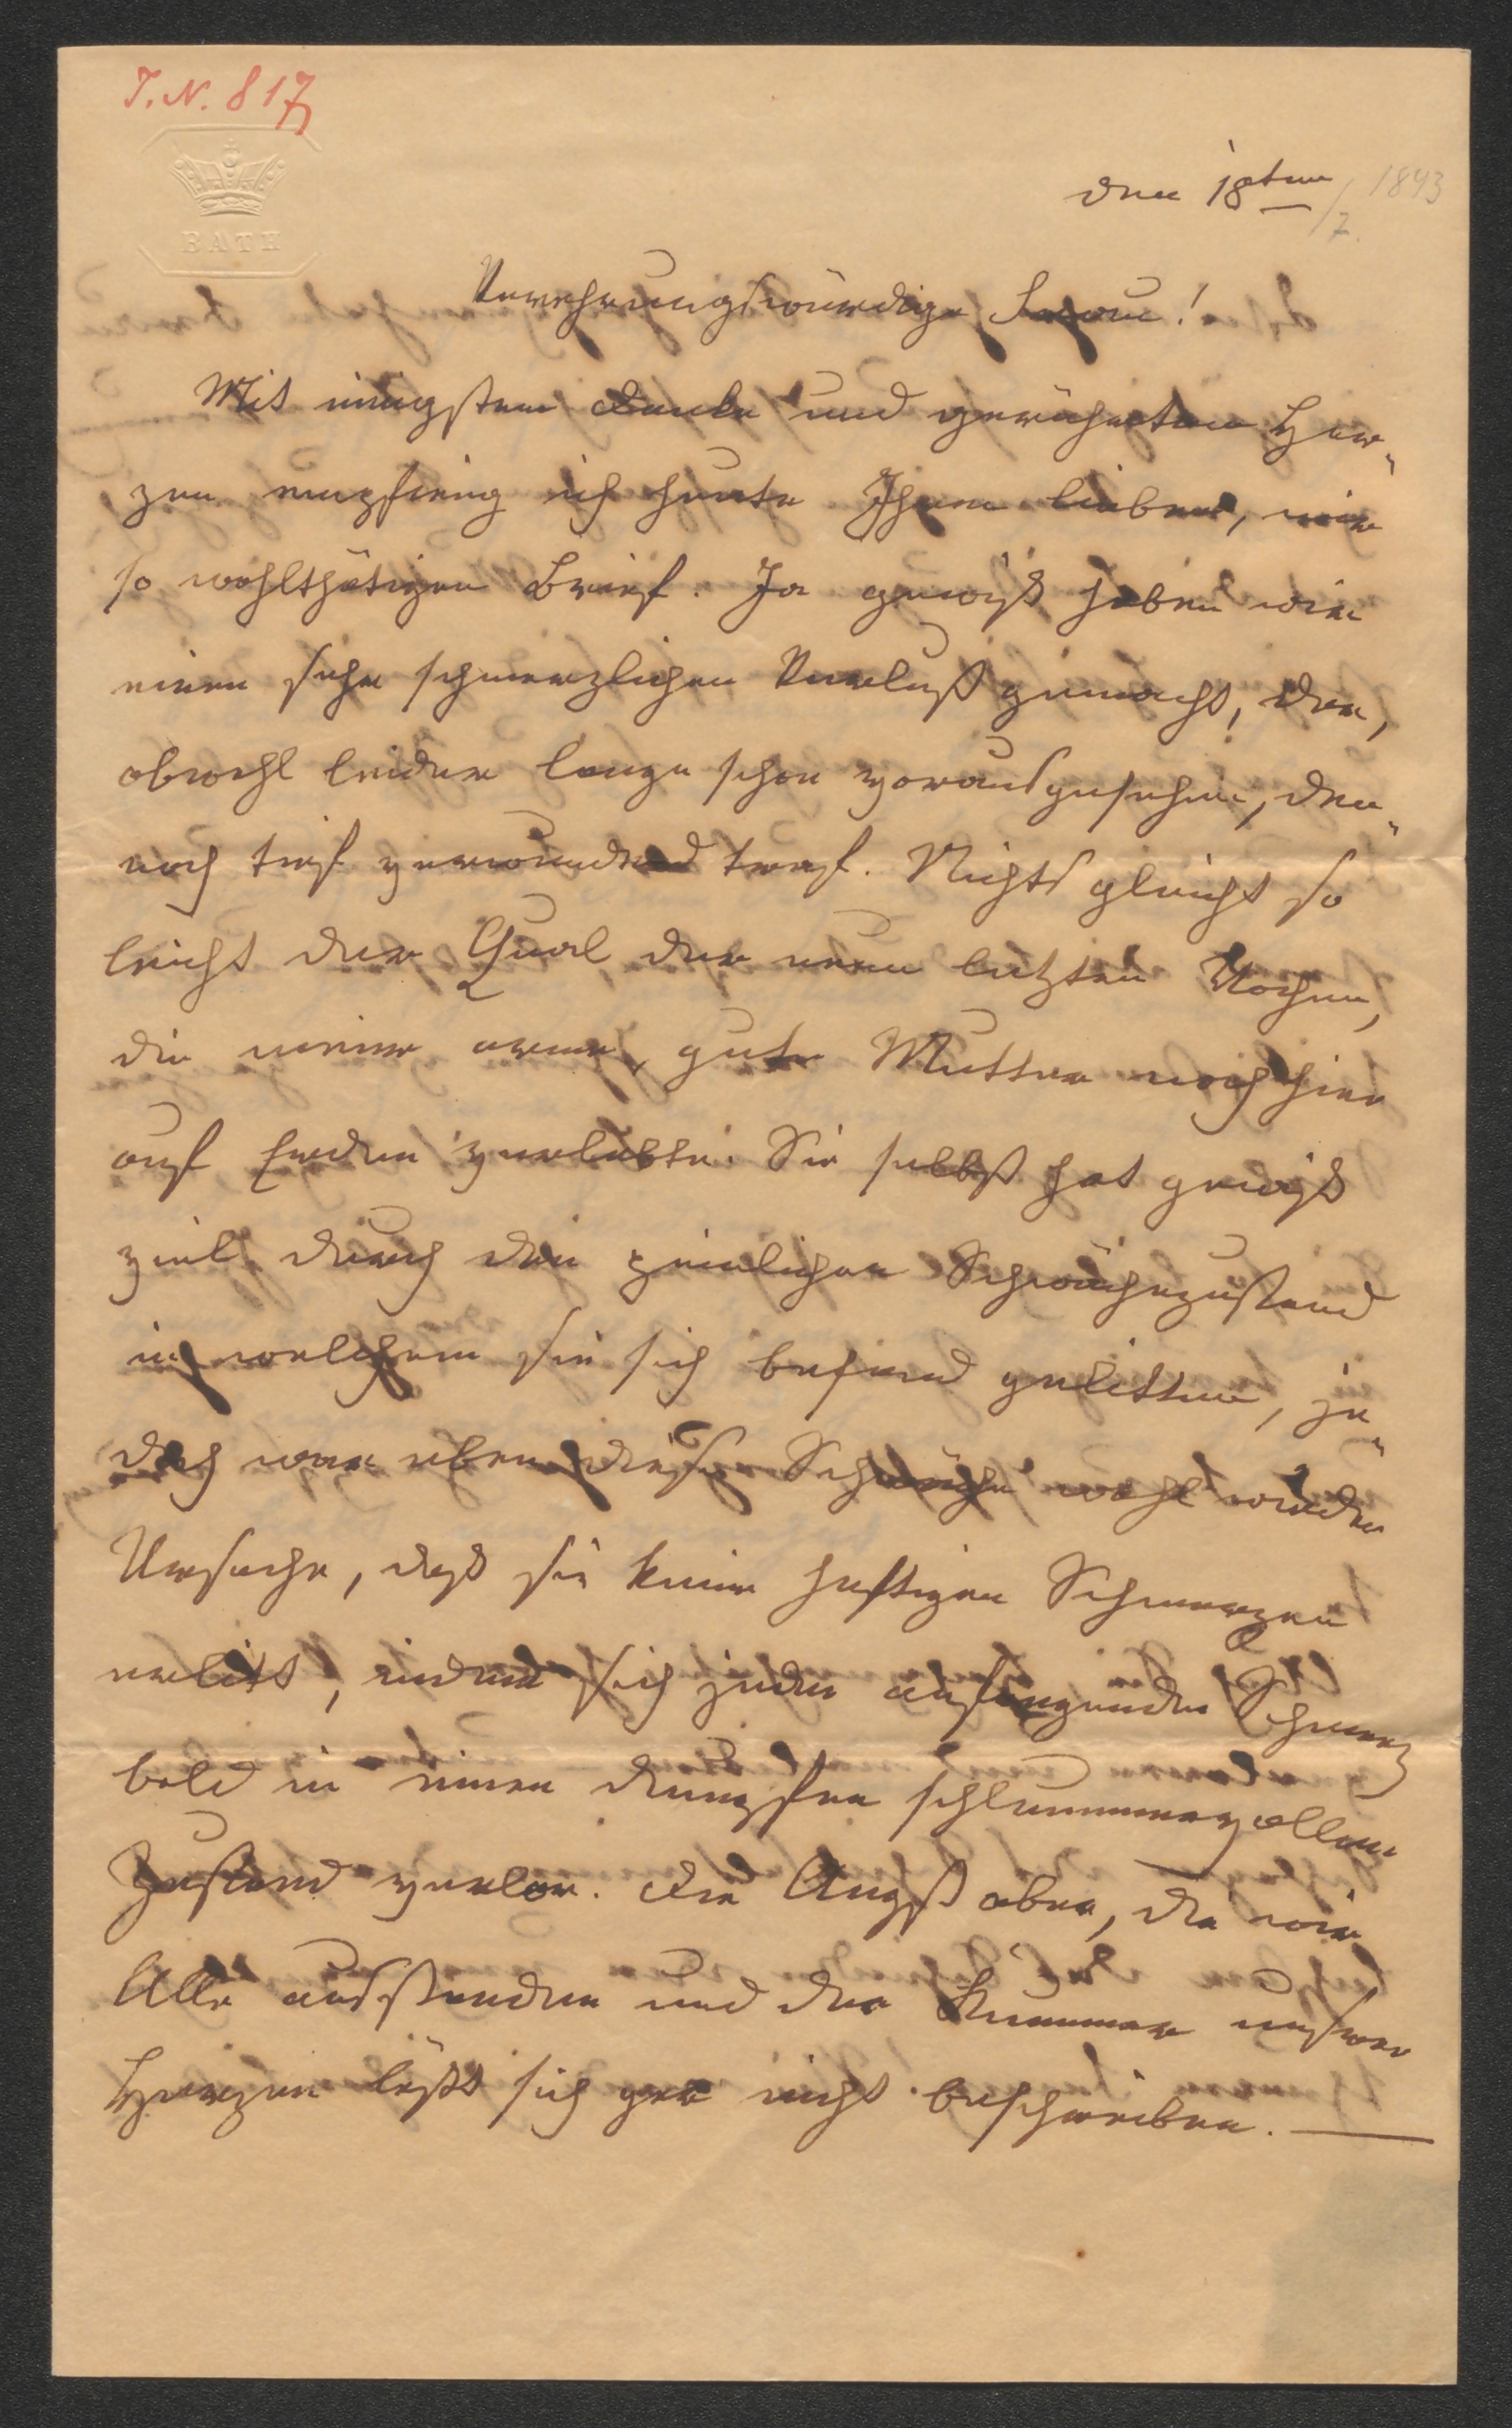 T. N. 817
BATH
den 18ten /7. 1843
Verehrungswürdige Frau!
Mit innigstem Danke und gerührtem Her-
zen empfieng ich heute Ihren lieben, mir
so wohlthätigen Brief. Ja gewiß haben wir
einen sehr schmerzlichen Verlust gemacht, der,
obwohl leider lange schon vorausgesehen, den-
noch tief verwundend traf. Nichts gleicht so
leicht der Qual der neun letzten Wochen,
die meine arme, gute Mutter noch hier
auf Erden verlebte. Sie selbst hat gewiß
viel durch den peinlichen Schwächezustand
in welchem sie sich befand gelitten, je-
doch war eben diese Schwäche wohl wieder
Ursache, daß sie keine heftigen Schmerzen
erlitt, indem sich jeder anfangende Schmerz
bald in einen dumpfen schlummervollen
Zustand verlor. Die Angst aber, die wir
Alle ausstanden und der Kummer unserer
Herzen läßt sich gar nicht beschreiben. —